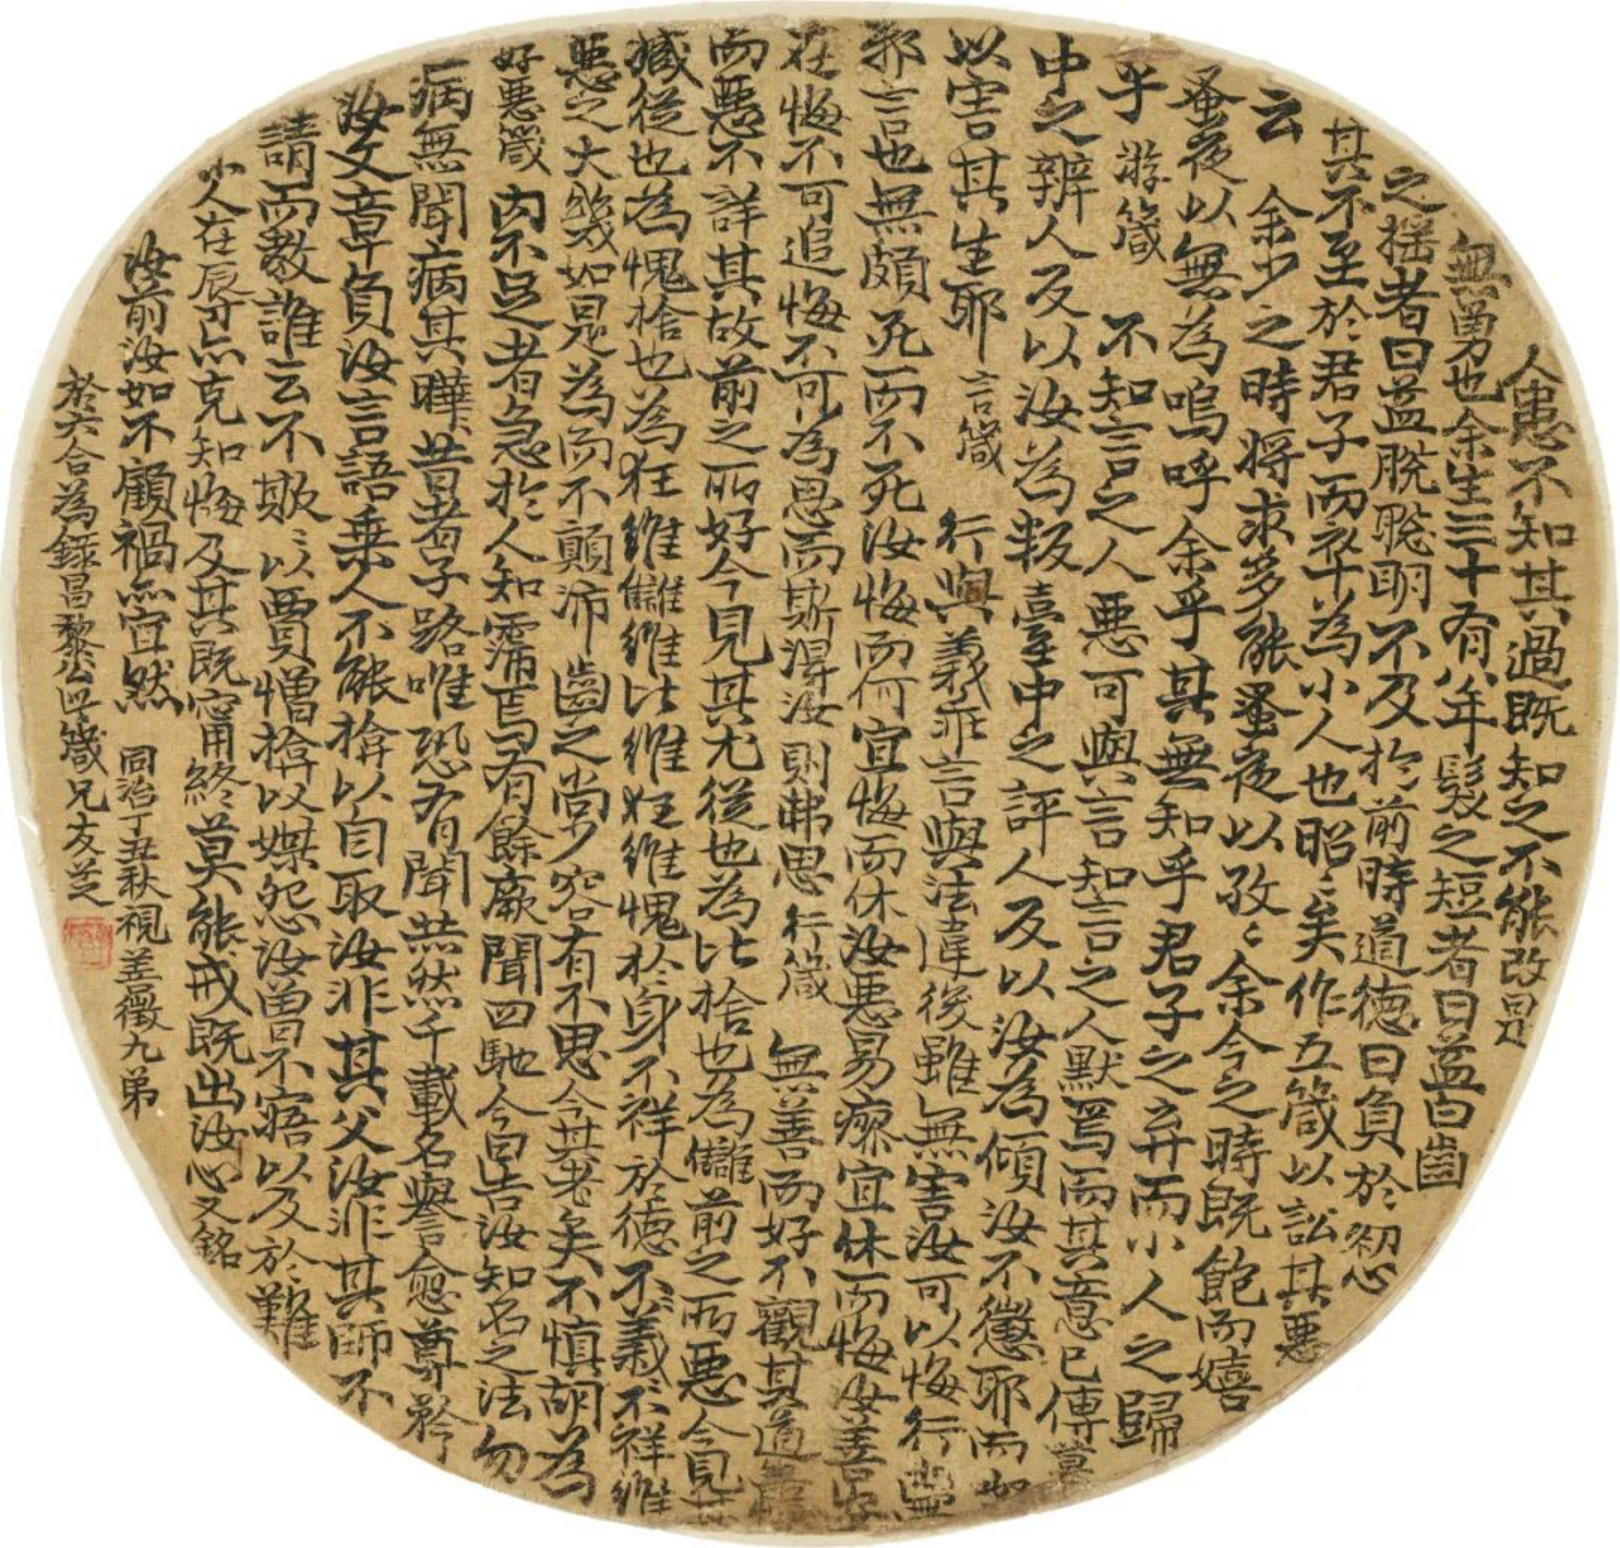 人患不知其過既知之不能改是
無勇也余生三十有八年髮之短者日益白齒
之揺者日益脫聡明不及於前時道德日負於初心
其不至於君子而卒為小人也昭〻矣作五箴以訟其惡
云 余少之時將求多能蚤夜以孜〻余今之時既飽而嬉
蚤夜以無為嗚呼余乎其無知乎君子之弃而小人之歸
乎 游箴 不知言之人惡可與言知言之人默焉而其意已傳幕
中之辨人反以汝為叛臺中之評人反以汝為傾汝不懲耶而呶
以害其生耶 言箴 行與義乖言與法違後雖無害汝可以悔行無
邪言也無頗死而不死汝悔而何宜悔而休汝惡易瘳宜休而悔汝善安
在悔不可追悔不可為思而斯得汝則弗思 行箴 無善而好不觀其道無
而惡不詳其故前之所好今見其尤從也為比捨也為讎前之所惡今見其
臧從也為愧捨也為狂維讎維比維狂維愧於身不祥於德不義不祥維
惡之大幾如是為而不顛沛齒之尚少容有不思今其老矣不慎胡為
好惡箴 內不足者急於人知霈焉有餘厥聞四馳今日告汝知名之法勿
病無聞病其曄曄昔者子路唯恐有聞赫然千載名譽愈尊矜
汝文章負汝言語乗人不能揜以自取汝非其父汝非其師不
請而教誰云不欺〻以賈憎揜以媒怨汝曽不寤以及於難
小人在辰亦克知悔及其既寍用終莫能戒既出汝心又銘
汝前汝如不顧禍亦宜然 同治丁丑秋視善徵九弟
於六合為録昌黎公五箴兄友芝